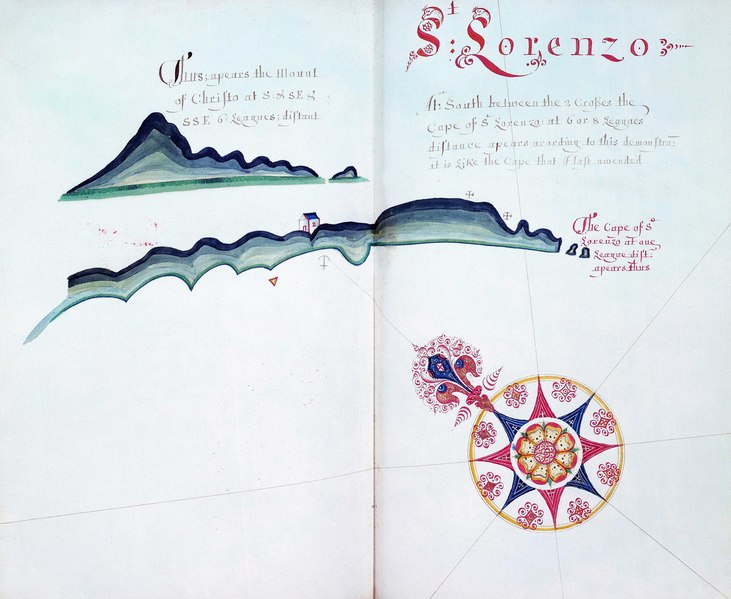 Thus; apears the Mount
of Christo at S: & SE &
SSE 6: Leagues; distant
St: Lorenzo:
At: South between the 2 Croßes the
Cape of St Lorenzo: at 6 or 8 Leagues
distance apears acording to this demonstra:
it is Like the Cape that I last amended
The Cape of St
Lorenzo at one
League dist:
apears thus